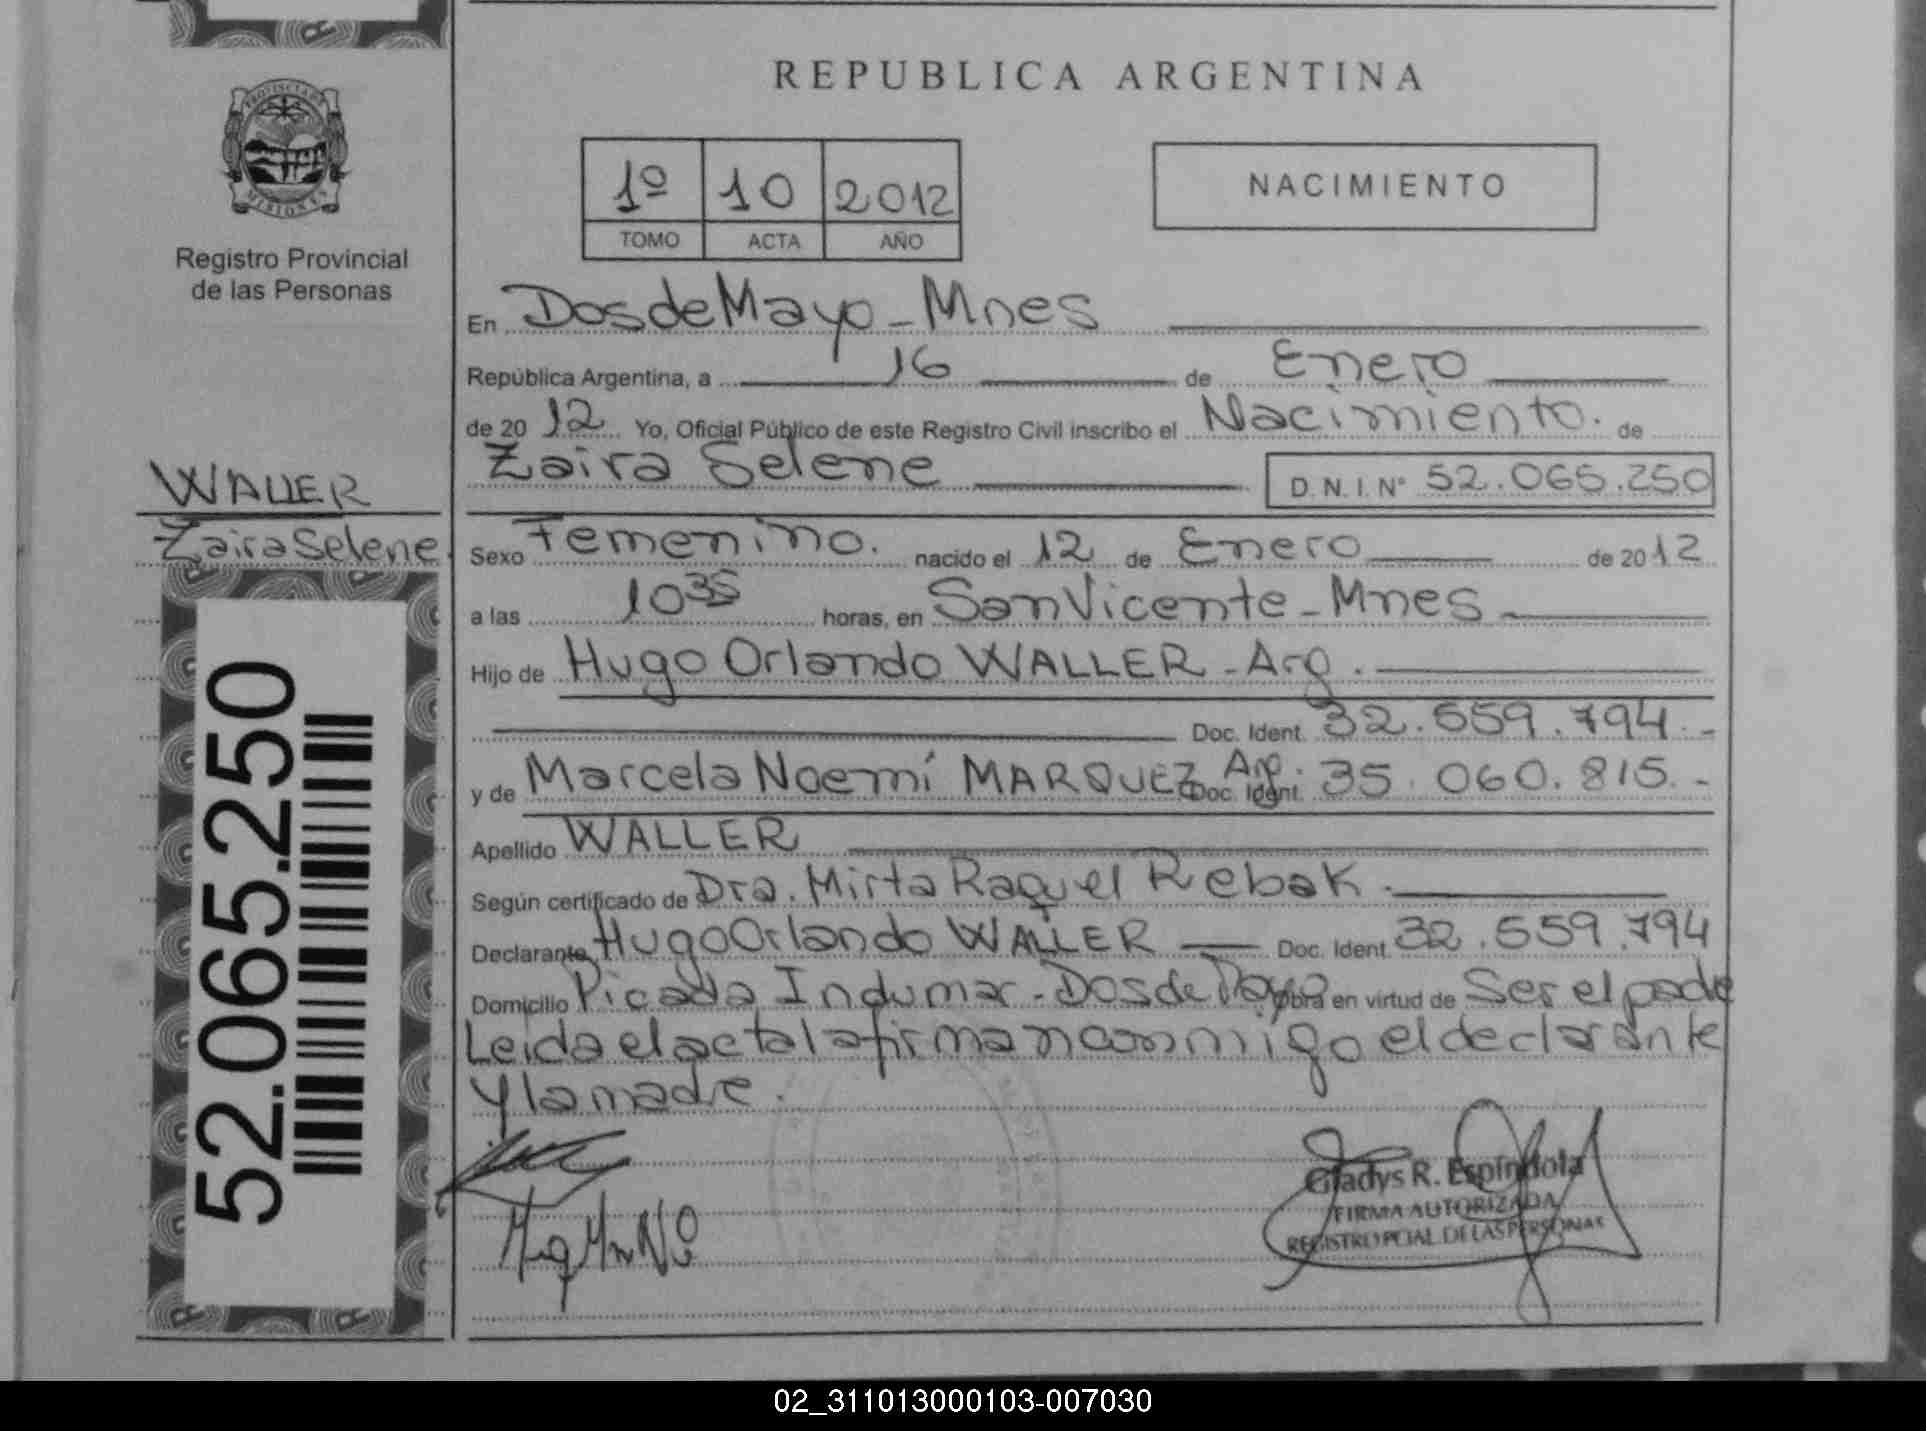 REPUBLICA ARGENTINA
PROVINCIA DE
MISIONES
Registro Provincial
de las Personas
1º 10 2012
TOMO ACTA AÑO
NACIMIENTO
En Dos de Mayo - Mnes
República Argentina, a 16 de Enero
de 2012 Yo, Oficial Público de este Registro Civil inscribo el Nacimiento. de
Zaira Selene D.N.I. N° 52.065.250
WALLER
Zaira Selene
52.065.250
Sexo Femenino. nacido el 12 de Enero de 2012
a las 10 35 horas, en San Vicente - Mnes
Hijo de Hugo Orlando WALLER - Arg.
Doc. Ident. 32.559.794.-
y de Marcela Noemí MARQUEZ Arg. Doc. Ident. 35.060.815.-
Apellido WALLER
Según certificado de Dra. Mirta Raquel Rebak.
Declarante Hugo Orlando WALLER Doc. Ident. 32.559.794
Domicilio Picada Indumar - Dos de Mayo Obra en virtud de Ser el padre
Leida el acta la firman conmigo el declarante
y la madre.
Gladys R. Espíndola
FIRMA AUTORIZADA
REGISTRO PCIAL DE LAS PERSONAS
02_311013000103-007030